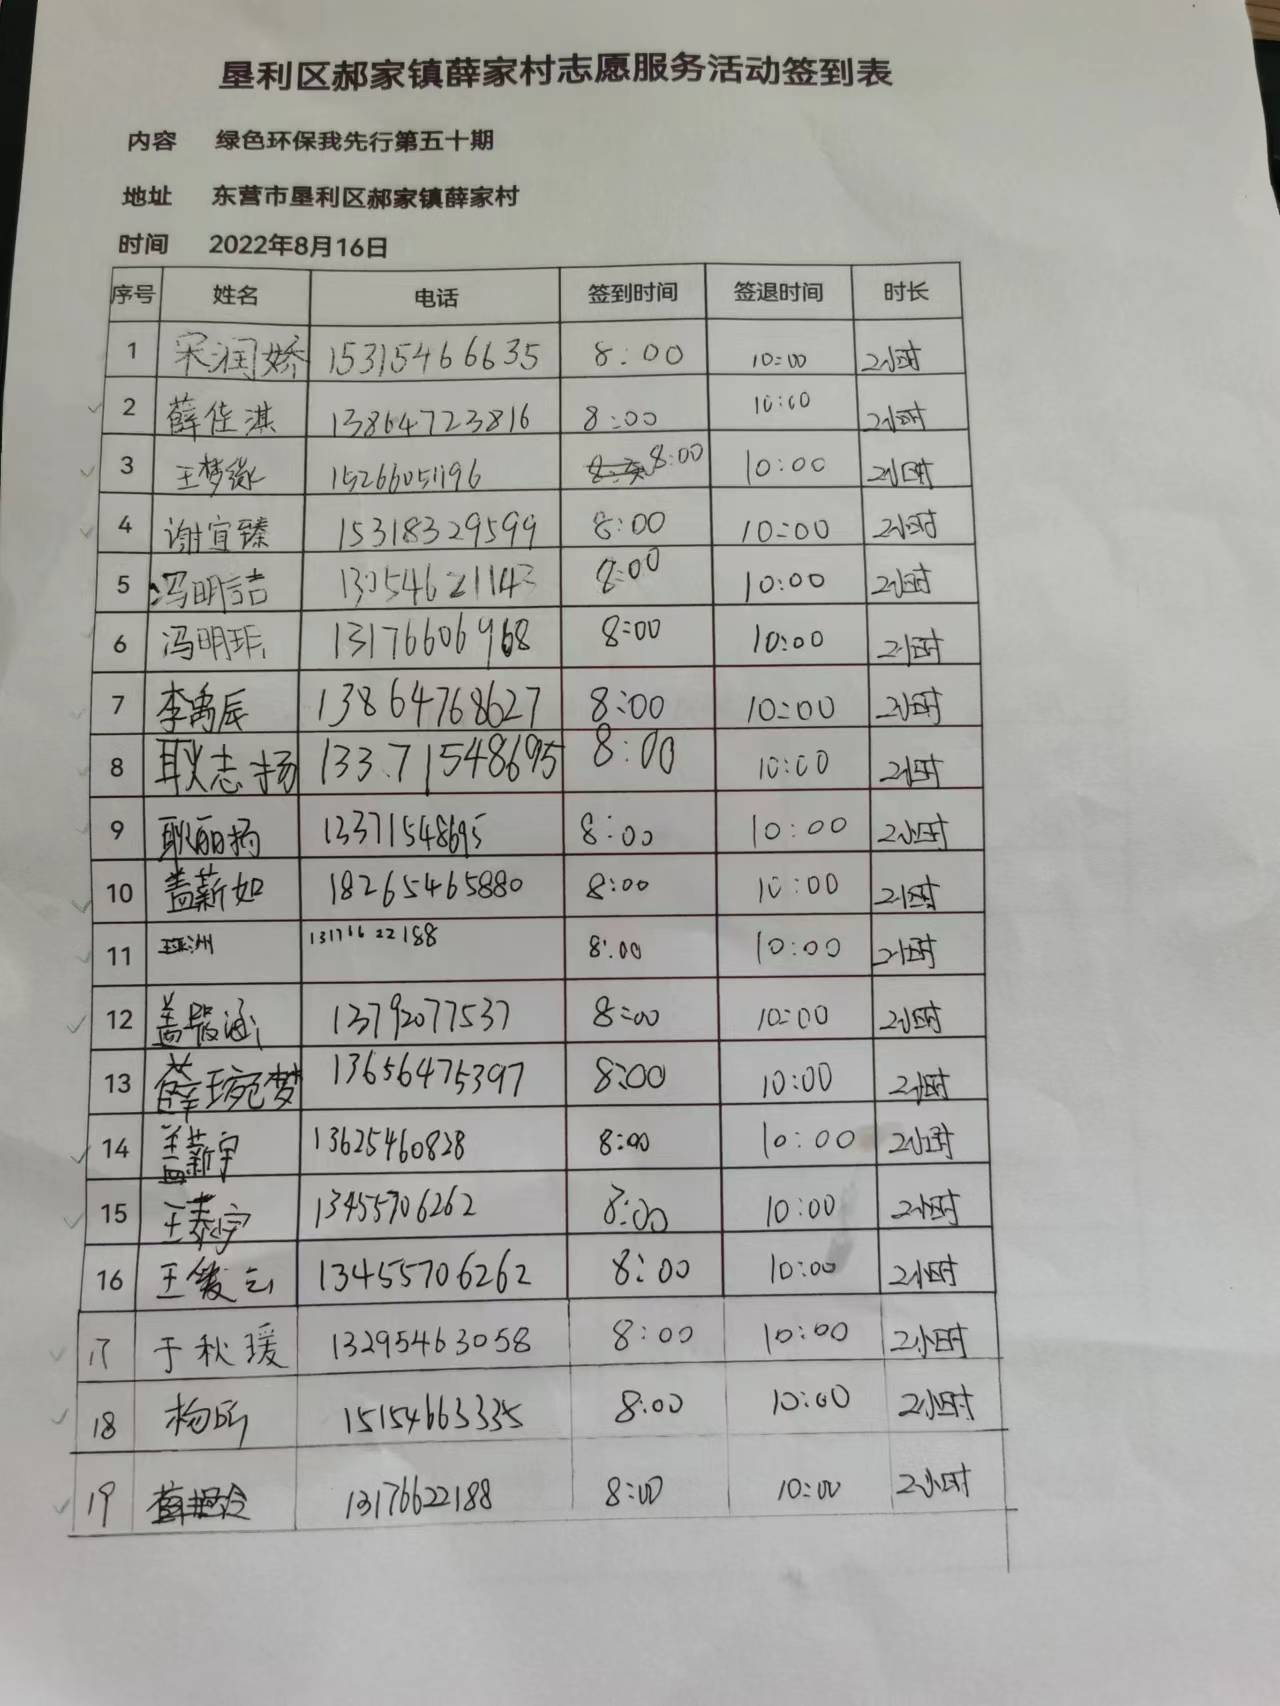 垦利区郝家镇薛家村志愿服务活动签到表
内容 绿色环保我先行第五十期
地址 东营市垦利区郝家镇薛家村
时间 2022年8月16日
序号 姓名 电话 签到时间 签退时间 时长
1 宋润娇 15315466635 8:00 10:00 2小时
2 薛佳淇 13864723816 8:00 10:00 2小时
3 王梦缘 15266051196 8:00 10:00 2小时
4 谢宜臻 15318329599 8:00 10:00 2小时
5 冯明喆 13054621143 8:00 10:00 2小时
6 冯明玥 13176606968 8:00 10:00 2小时
7 李禹辰 13864768627 8:00 10:00 2小时
8 耿志扬 13371548695 8:00 10:00 2小时
9 耿丽扬 13371548695 8:00 10:00 2小时
10 盖薪如 18265465880 8:00 10:00 2小时
11 13176622188 8:00 10:00 2小时
12 盖 涵 13792077537 8:00 10:00 2小时
13 薛琬梦 13656475397 8:00 10:00 2小时
14 盖薪宇 13625460828 8:00 10:00 2小时
15 王泰宇 13455706262 8:00 10:00 2小时
16 王 13455706262 8:00 10:00 2小时
17 于秋瑗 13295463058 8:00 10:00 2小时
18 杨 15154663335 8:00 10:00 2小时
19 薛 13176622188 8:00 10:00 2小时